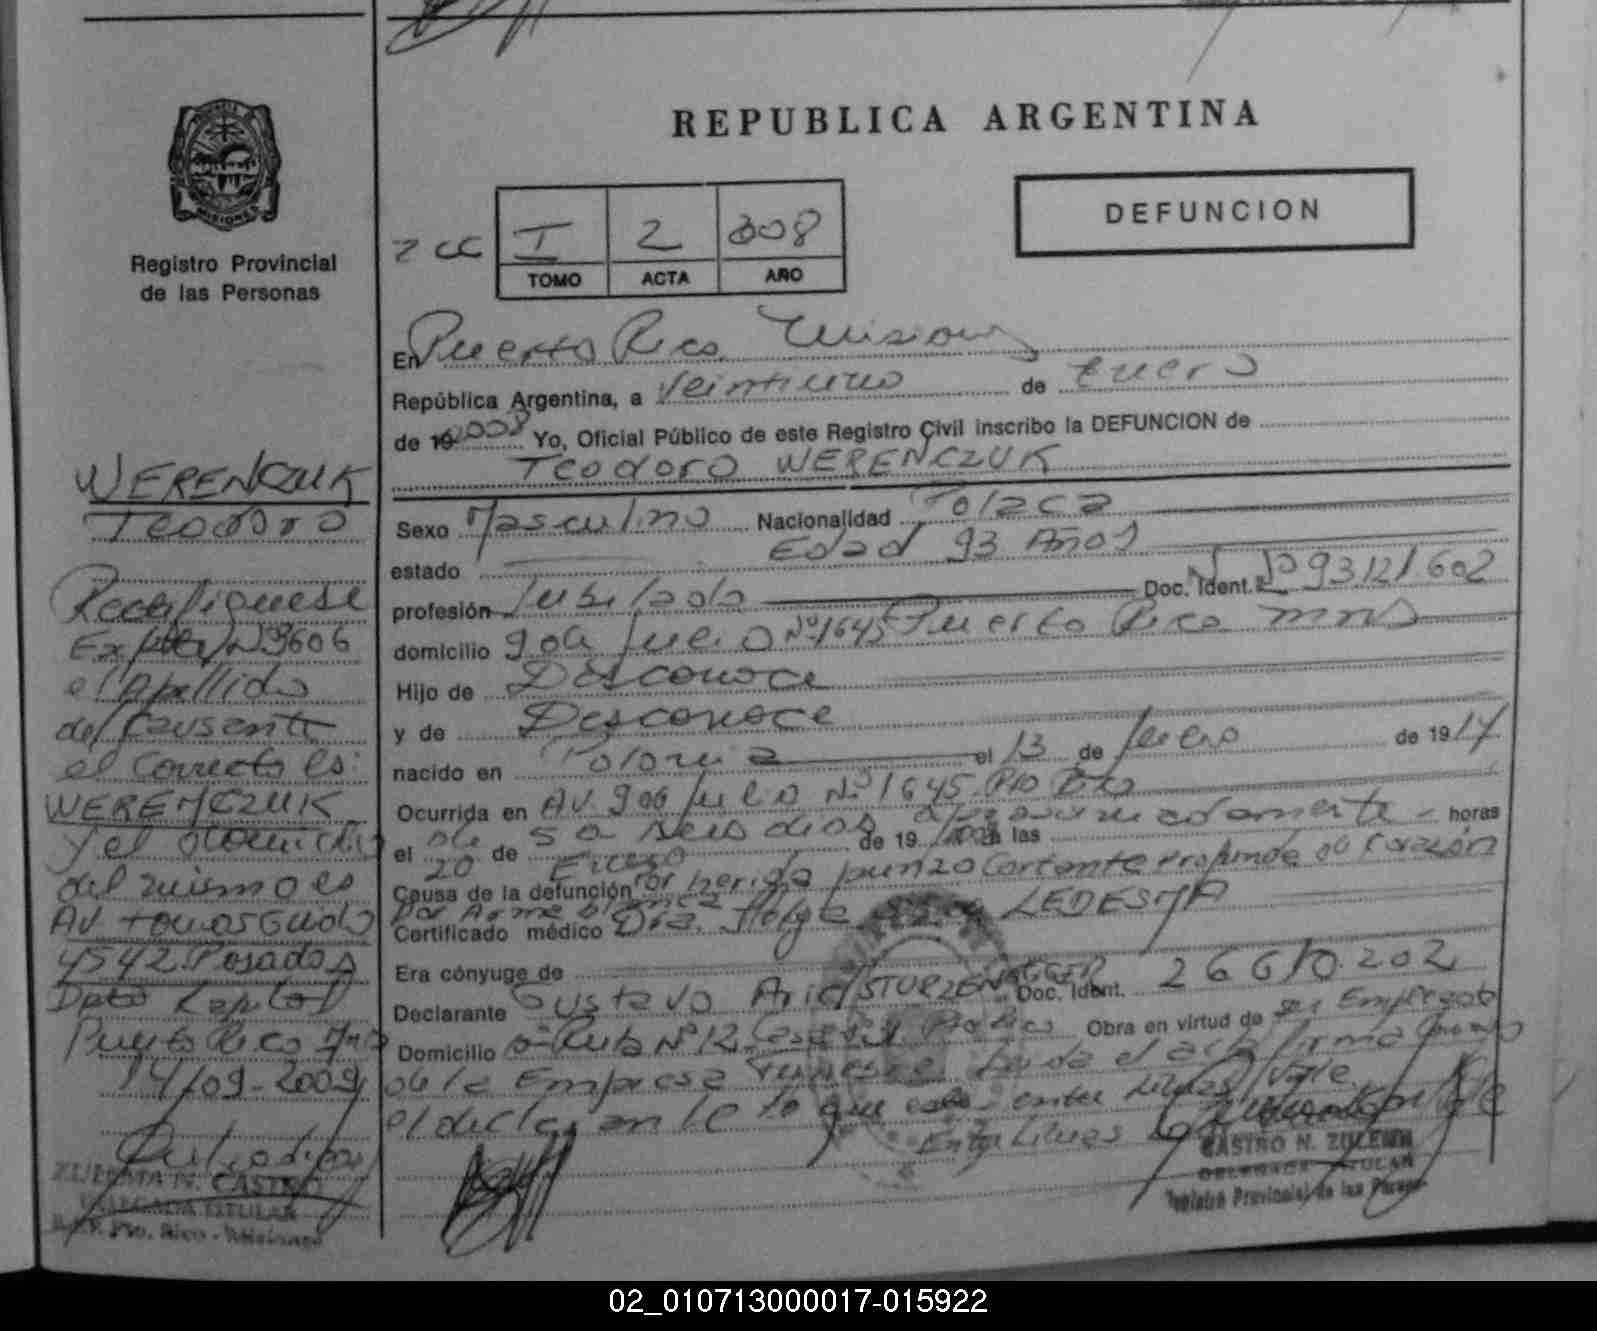 REPUBLICA ARGENTINA
MISIONES
Registro Provincial
de las Personas
DEFUNCION
I 2 008
TOMO ACTA AÑO
En Puerto Rico Misiones
República Argentina, a Veintiuno de Enero
de 19 2008 Yo, Oficial Público de este Registro Civil inscribo la DEFUNCION de
Teodoro WERENCZUK
Sexo Masculino Nacionalidad Polaca
Edad 93 Años
estado
profesión Jubilado Doc. Ident. Nº 93121.602
domicilio 9 de Julio Nº 1645 Puerto Rico Mnes
Hijo de Desconoce
y de Desconoce
nacido en Polonia el 13 de de 1914
Ocurrida en AV. 9 de Julio Nº 1645 Pto Rico
de 5 a seis días aproximadamente horas
el 20 de Enero de 19 a las
Causa de la defunción Por herida punzo Cortante profunda de Corazón
Por Arma blanca
Certificado médico Dra. LEDESMA
Era cónyuge de
Declarante Gustavo Ariel STURZENEGGER Doc. Ident. 26610.202
Domicilio Ruta Nº 12 Obra en virtud de ser Empleado
de la Empresa Leida el acta firma
el declarante lo que entre Lineas Vale.
Entre Lineas
CASTRO N. ZULEMA
DELEGADA TITULAR
Registro Provincial de las Personas
WERENCZUK
Teodoro
Rectifiquese
Expte Nº 3606
el Apellido
del Causante
el Correcto es:
WEREMCZUK
y el domicilio
del mismo es
AV. Tomas Guido
4542 Posadas
Dpto Capital
Puerto Rico Mnes
14/09-2009
ZULEMA N. CASTRO
DELEGADA TITULAR
R.P.P. Pto. Rico - Misiones
02_010713000017-015922